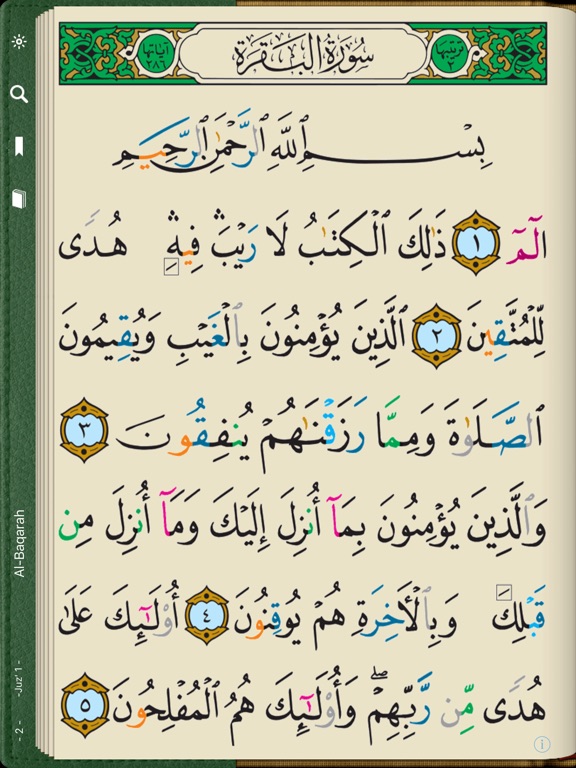 ترتيبها ٢
سُورَةُ البَقَرَةِ
آياتها ٢٨٦
بِسْمِ ٱللَّهِ ٱلرَّحْمَٰنِ ٱلرَّحِيمِ
الٓمٓ ١ ذَٰلِكَ ٱلْكِتَٰبُ لَا رَيْبَ ۛ فِيهِ ۛ هُدًى
لِّلْمُتَّقِينَ ٢ ٱلَّذِينَ يُؤْمِنُونَ بِٱلْغَيْبِ وَيُقِيمُونَ
ٱلصَّلَوٰةَ وَمِمَّا رَزَقْنَٰهُمْ يُنفِقُونَ ٣
وَٱلَّذِينَ يُؤْمِنُونَ بِمَآ أُنزِلَ إِلَيْكَ وَمَآ أُنزِلَ مِن
قَبْلِكَ وَبِٱلْأَخِرَةِ هُمْ يُوقِنُونَ ٤ أُو۟لَٰٓئِكَ عَلَىٰ
هُدًى مِّن رَّبِّهِمْ ۖ وَأُو۟لَٰٓئِكَ هُمُ ٱلْمُفْلِحُونَ ٥
Al-Baqarah
-Juz' 1 -
- 2 -